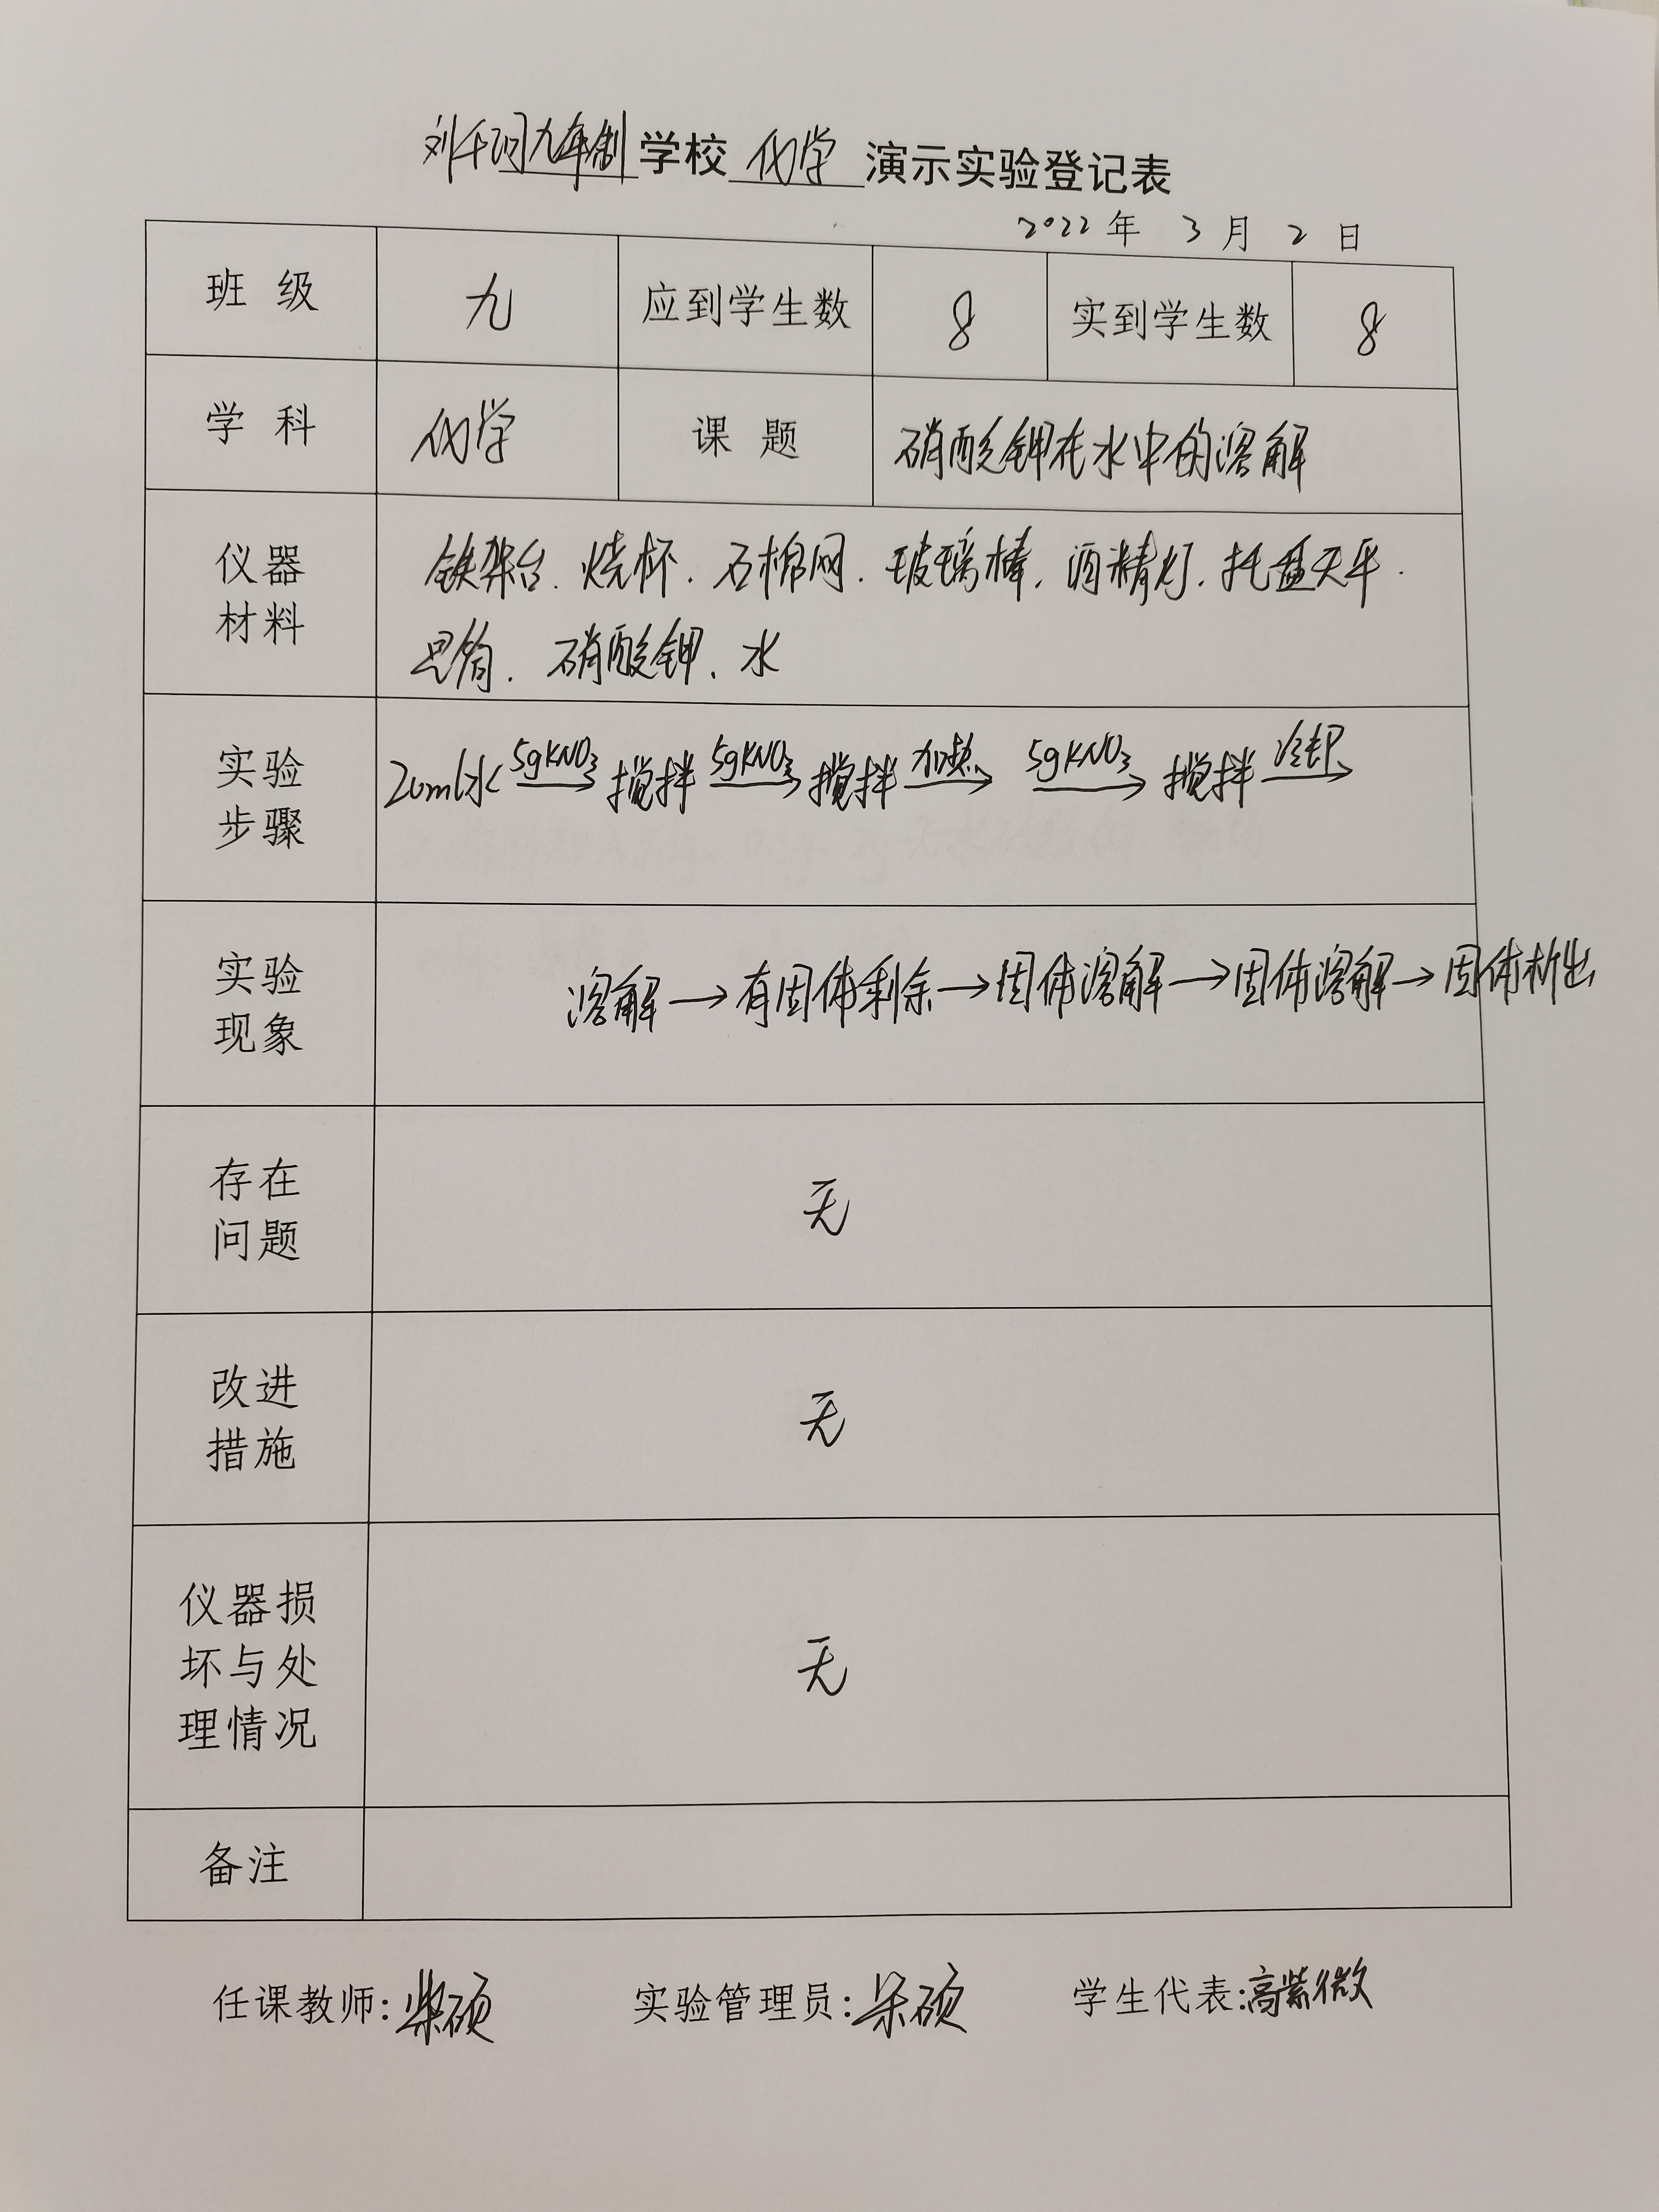 刘千河九年制学校 化学 演示实验登记表
2022年 3月 2日
班 级 九 应到学生数 8 实到学生数 8
学 科 化学 课 题 硝酸钾在水中的溶解
仪器
材料
铁架台、烧杯、石棉网、玻璃棒、酒精灯、托盘天平、
量筒、硝酸钾、水
实验
步骤
20ml水 5gKNO₃→ 搅拌 5gKNO₃→ 搅拌 加热→ 5gKNO₃→ 搅拌 冷却→
实验
现象
溶解→有固体剩余→固体溶解→固体溶解→固体析出
存在
问题
无
改进
措施
无
仪器损
坏与处
理情况
无
备注
任课教师: 柴硕 实验管理员: 硕 学生代表:高紫微